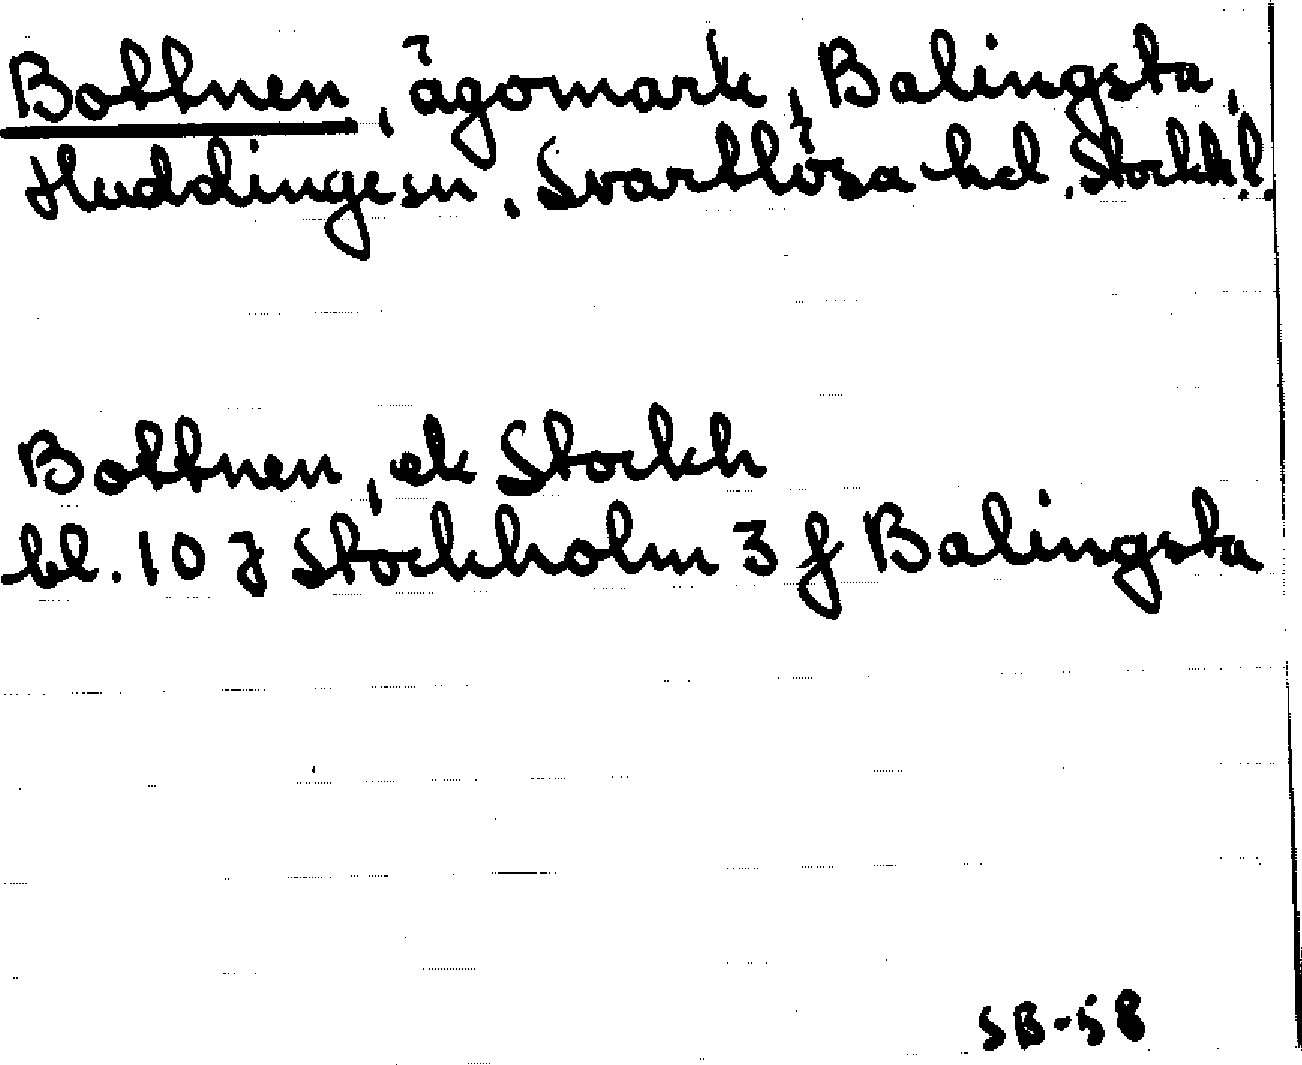 Bottnen, ägomark, Balingsta,
Huddinge sn, Svartlösa hd, Stockh. l.
Bottnen, ek Stockh
bl. 10 J Stockholm 3 f Balingsta
SB-58